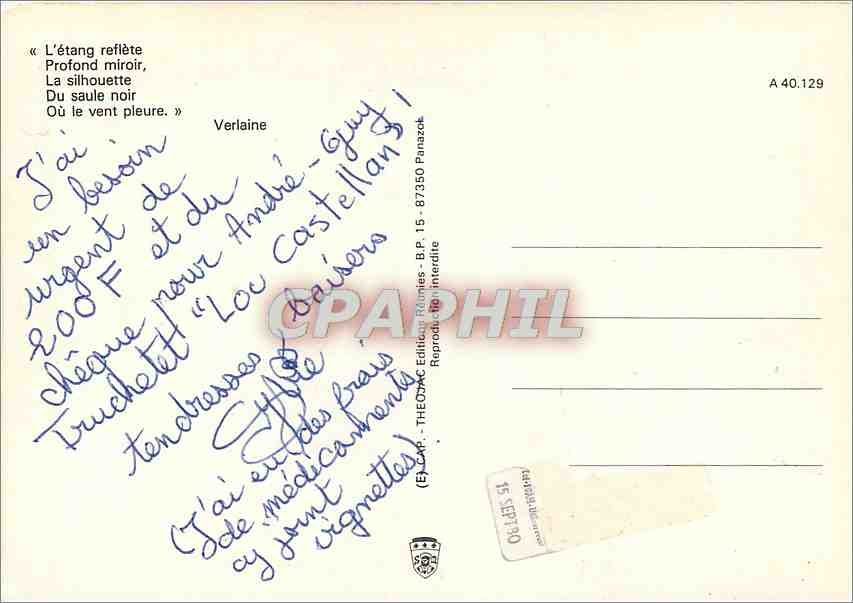 « L'étang reflète
Profond miroir,
La silhouette
Du saule noir
Où le vent pleure. »
Verlaine
A 40.129
J'ai
un besoin
urgent de
200 F et du
chèque pour André-Guy
Truchetet "Loc Castellans"
tendresses baisers
(J'ai eu des frais
de médicaments
cy joint
vignettes).
(E) CAP. - THEOJAC Editions Réunies - B.P. 15 - 87350 Panazol
Reproduction interdite
CPAPHIL
15 SEPT 80